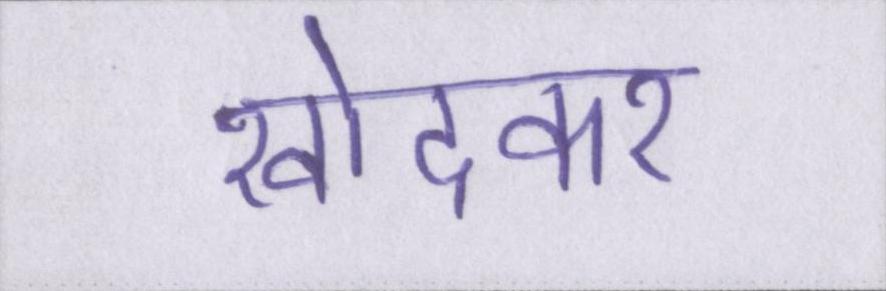 खोदकर